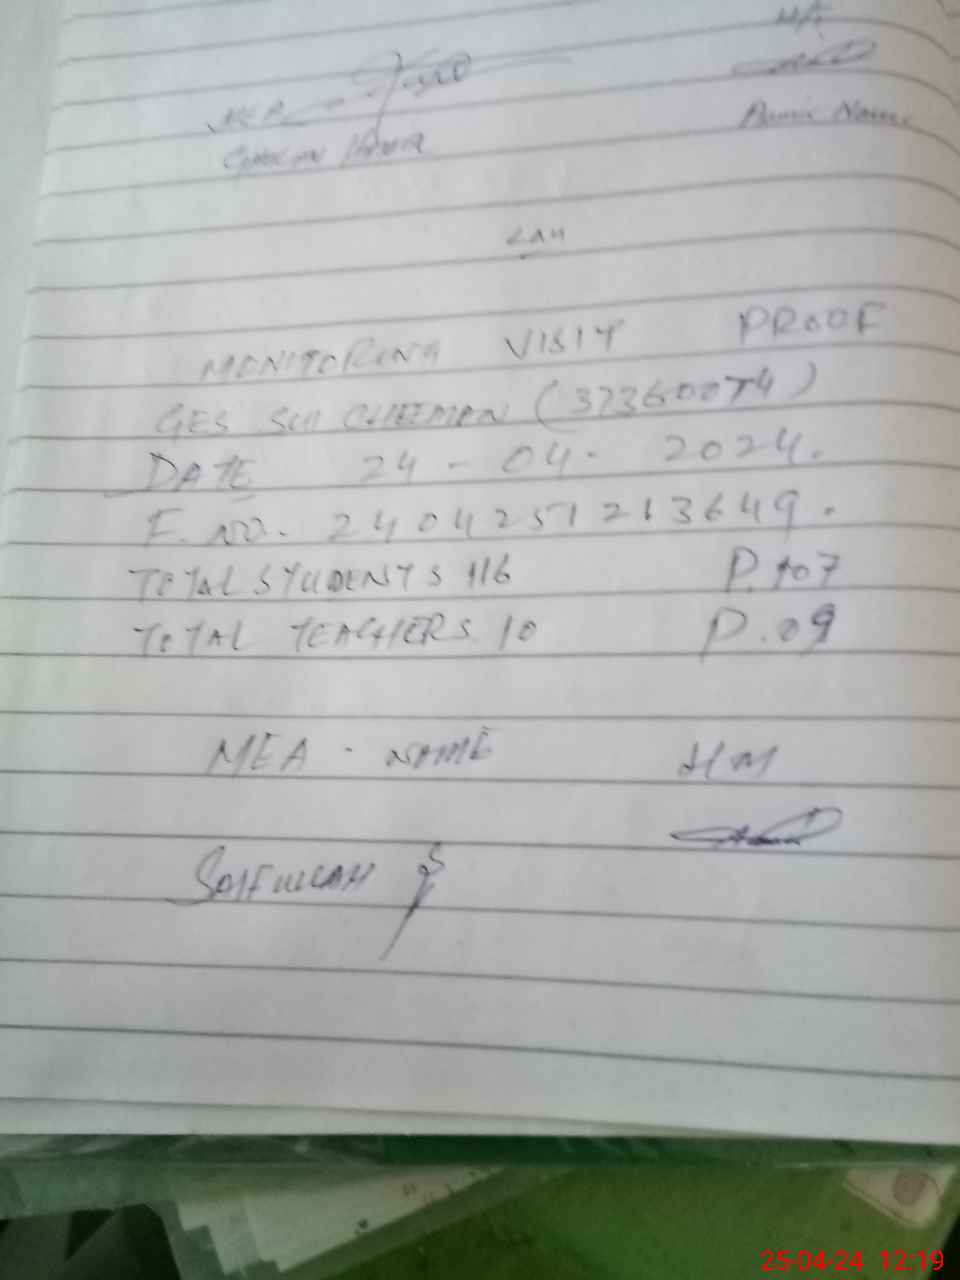 MEA
HM
MONITORING VISIT PROOF
GES SUI CHEEMAN (37360074)
DATE 24-04-2024.
F.NO. 2404251213649.
TOTAL STUDENTS 116 P.107
TOTAL TEACHERS 10 P.09
MEA - NAME HM
SAIFULLAH
25-04-24 12:19